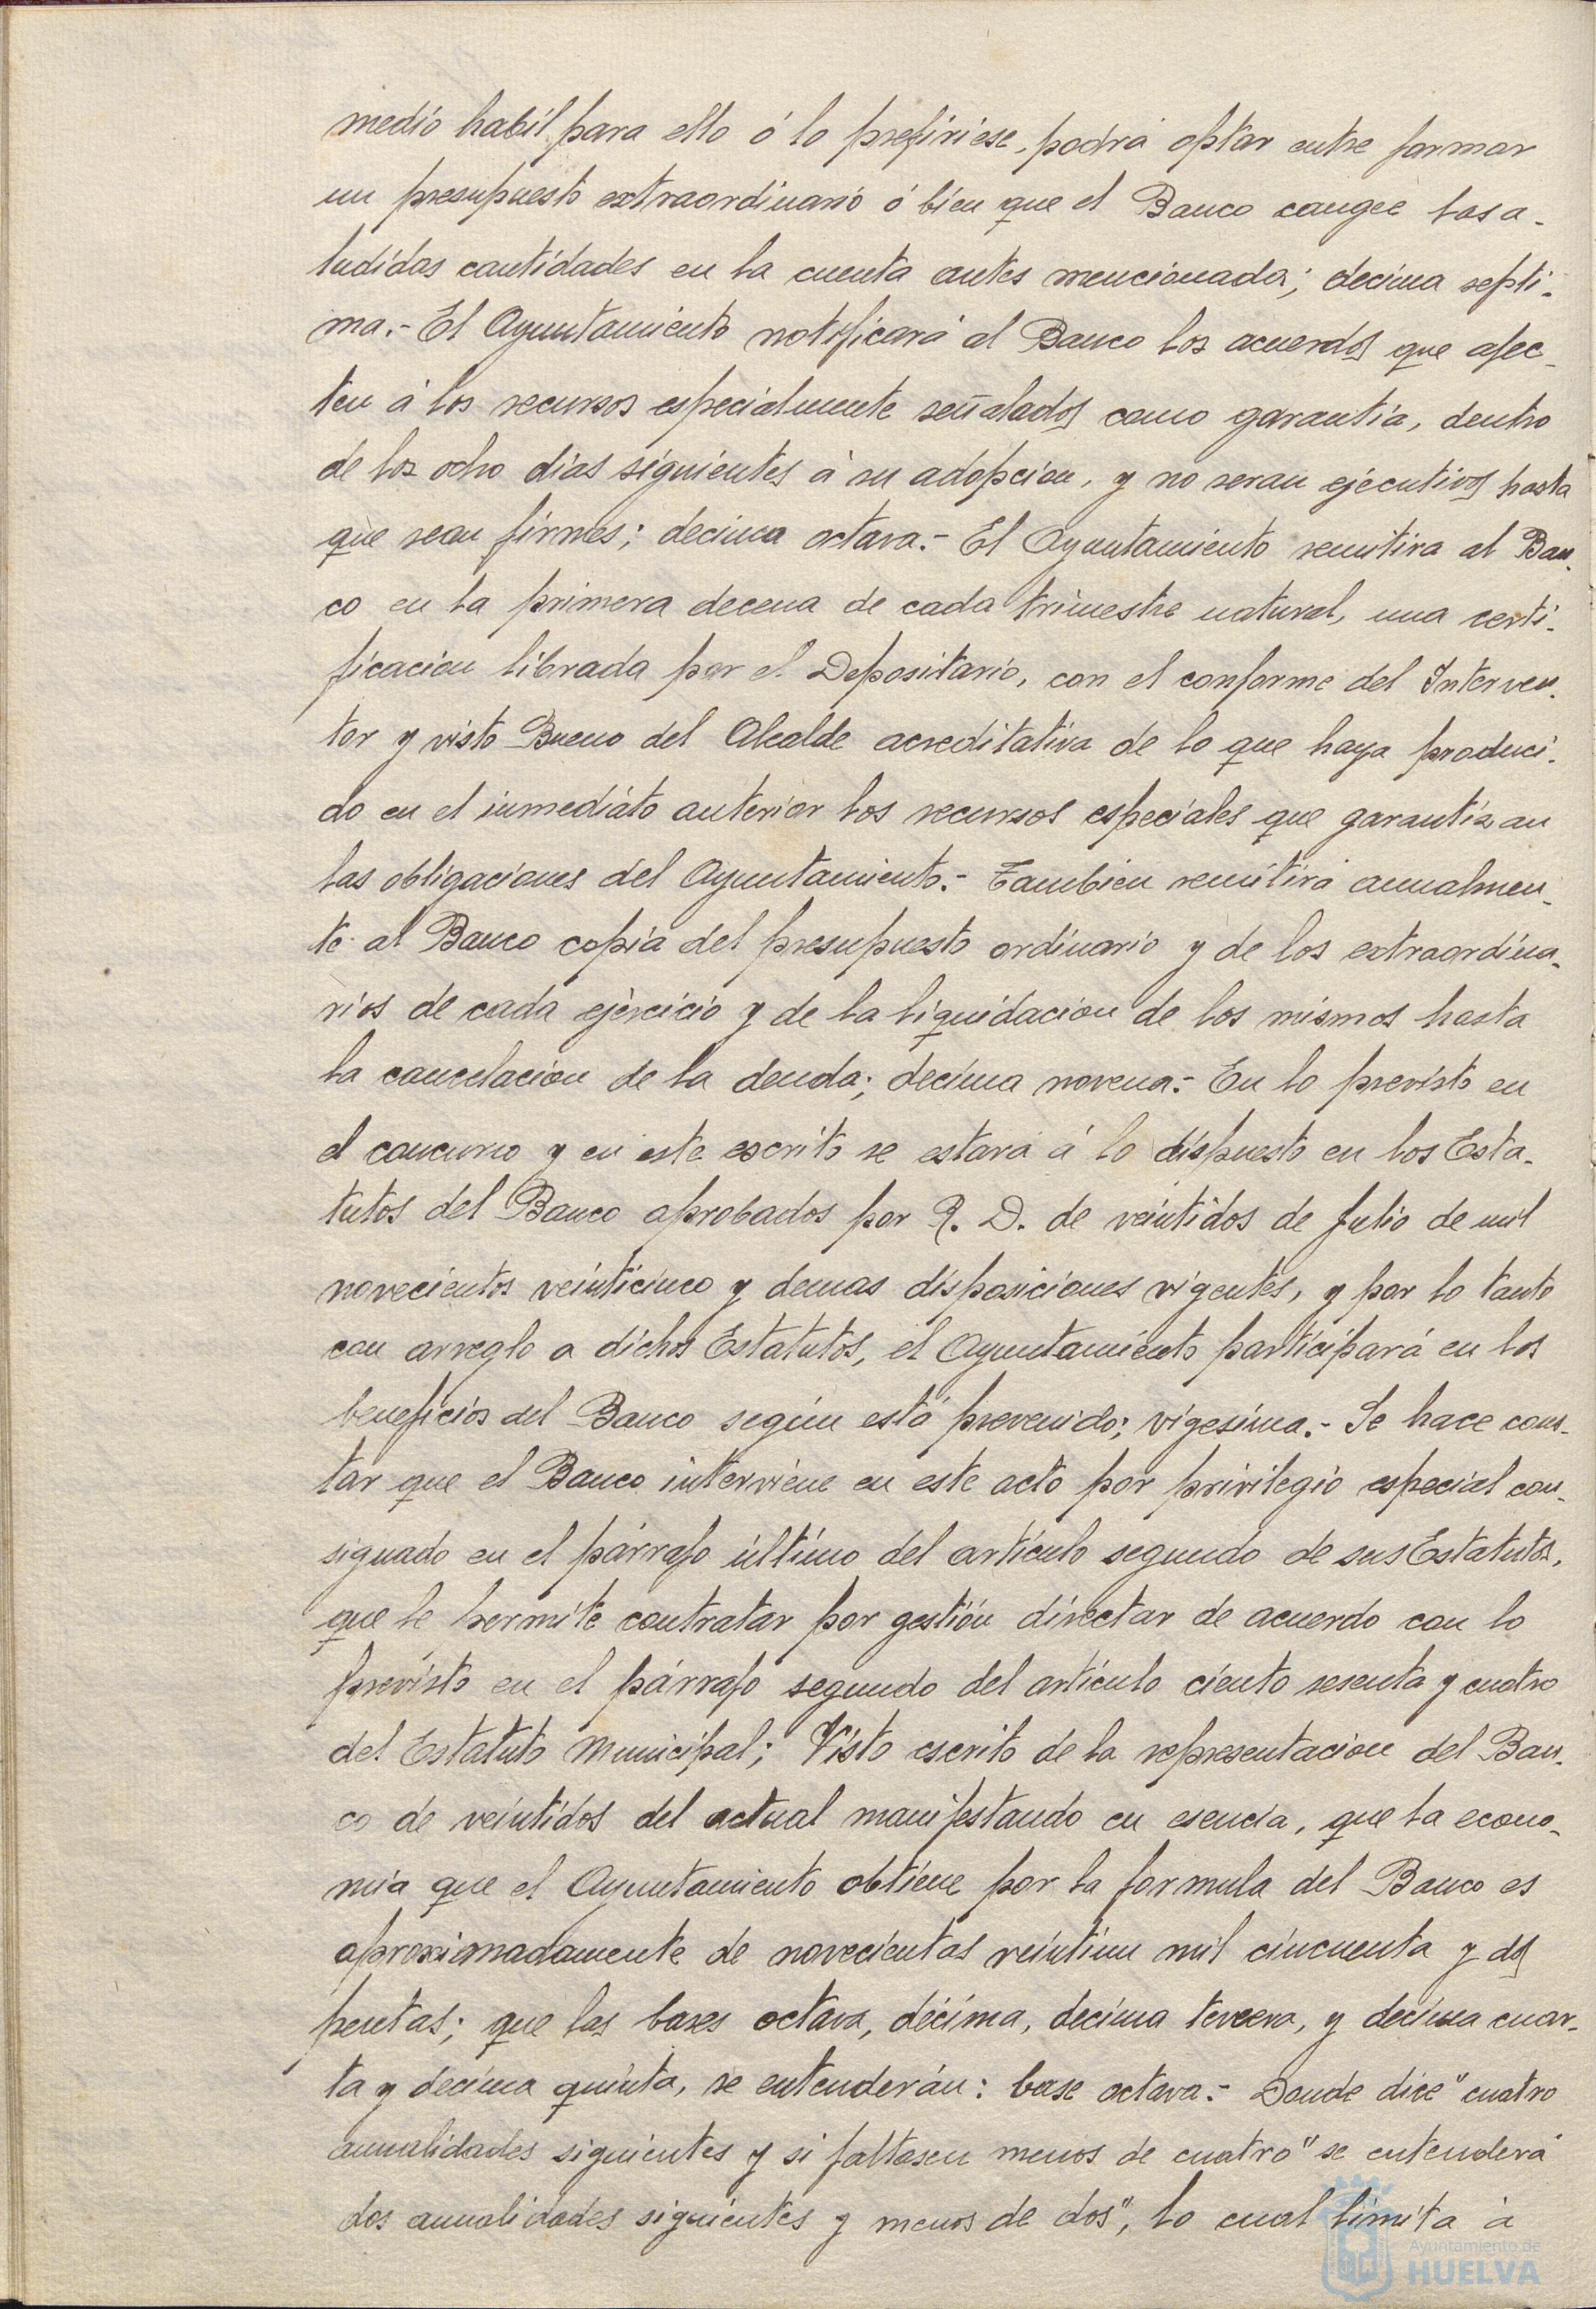 medio habil para ello ó lo prefiriése, podrá optar entre formar
un presupuesto extraordinario ó bien que el Banco cangee las a-
ludidas cantidades en la cuenta antes mencionada; decima septi-
ma.- El Ayuntamiento notificará al Banco los acuerdos que afec-
ten á los recursos especialmente señalados como garantia, dentro
de los ocho dias siguientes á su adopcion, y no seran ejecutivos hasta
que sean firmes; decima octava.- El Ayuntamiento remitira al Ban-
co en la primera decena de cada trimestre natural, una certi-
ficacion librada por el Depositario, con el conforme del Interven-
tor y visto Bueno del Alcalde acreditativa de lo que haya produci-
do en el inmediato anterior los recursos especiales que garantizan
las obligaciones del Ayuntamiento.- Tambien remitirá anualmen-
te al Banco copia del presupuesto ordinario y de los extraordina-
rios de cada ejercicio y de la liquidacion de los mismos hasta
la cancelacion de la deuda; decima novena.- En lo previsto en
el concurso y en este escrito se estará á lo dispuesto en los Esta-
tutos del Banco aprobados por R. D. de veintidos de Julio de mil
novecientos veinticinco y demas disposiciones vigentes, y por lo tanto
con arreglo a dichos Estatutos, el Ayuntamiento participará en los
beneficios del Banco según está prevenido; vigesima.- Se hace cons-
tar que el Banco interviene en este acto por privilegio especial con-
signado en el párrafo último del articulo segundo de sus Estatutos,
que le permite contratar por gestión directar de acuerdo con lo
previsto en el párrafo segundo del articulo ciento sesenta y cuatro
del Estatuto Municipal; Visto escrito de la representacion del Ban-
co de veintidos del actual manifestando en esencia, que la econo-
mia que el Ayuntamiento obtiene por la formula del Banco es
aproximadamente de novecientas veintiun mil cincuenta y dos
pesetas; que las bases octava, décima, decima tercera, y decima cuar-
ta y decima quinta, se entenderán: base octava.- Donde dice "cuatro
anualidades siguientes y si faltasen menos de cuatro" se entenderá
dos anualidades siguientes y menos de dos", lo cual limita á
Ayuntamiento de
HUELVA